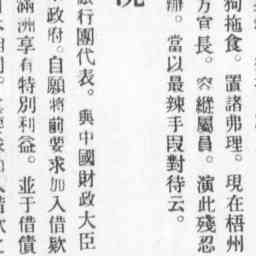 狗拖食。置諸弗理。現在梧州
方官長。突縱屬員。演此殘忍
辦。當以最辣手叚對待云。
銀行團代表。與中國財政大臣
政府。自願將前要求加入借欵
滿洲享有特別利益。並于借債